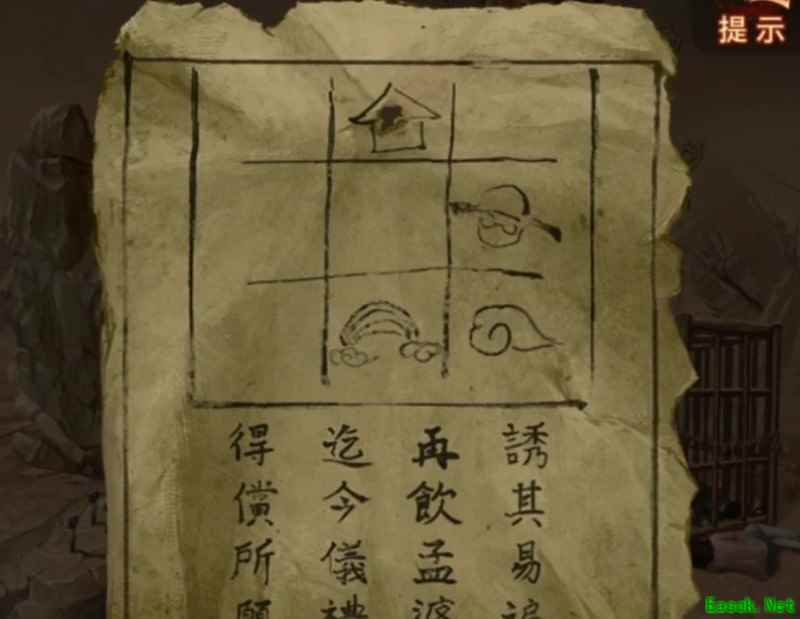 提示
誘其易
再飲孟婆
迄今儀禮
得償所願
Eaeok.Net